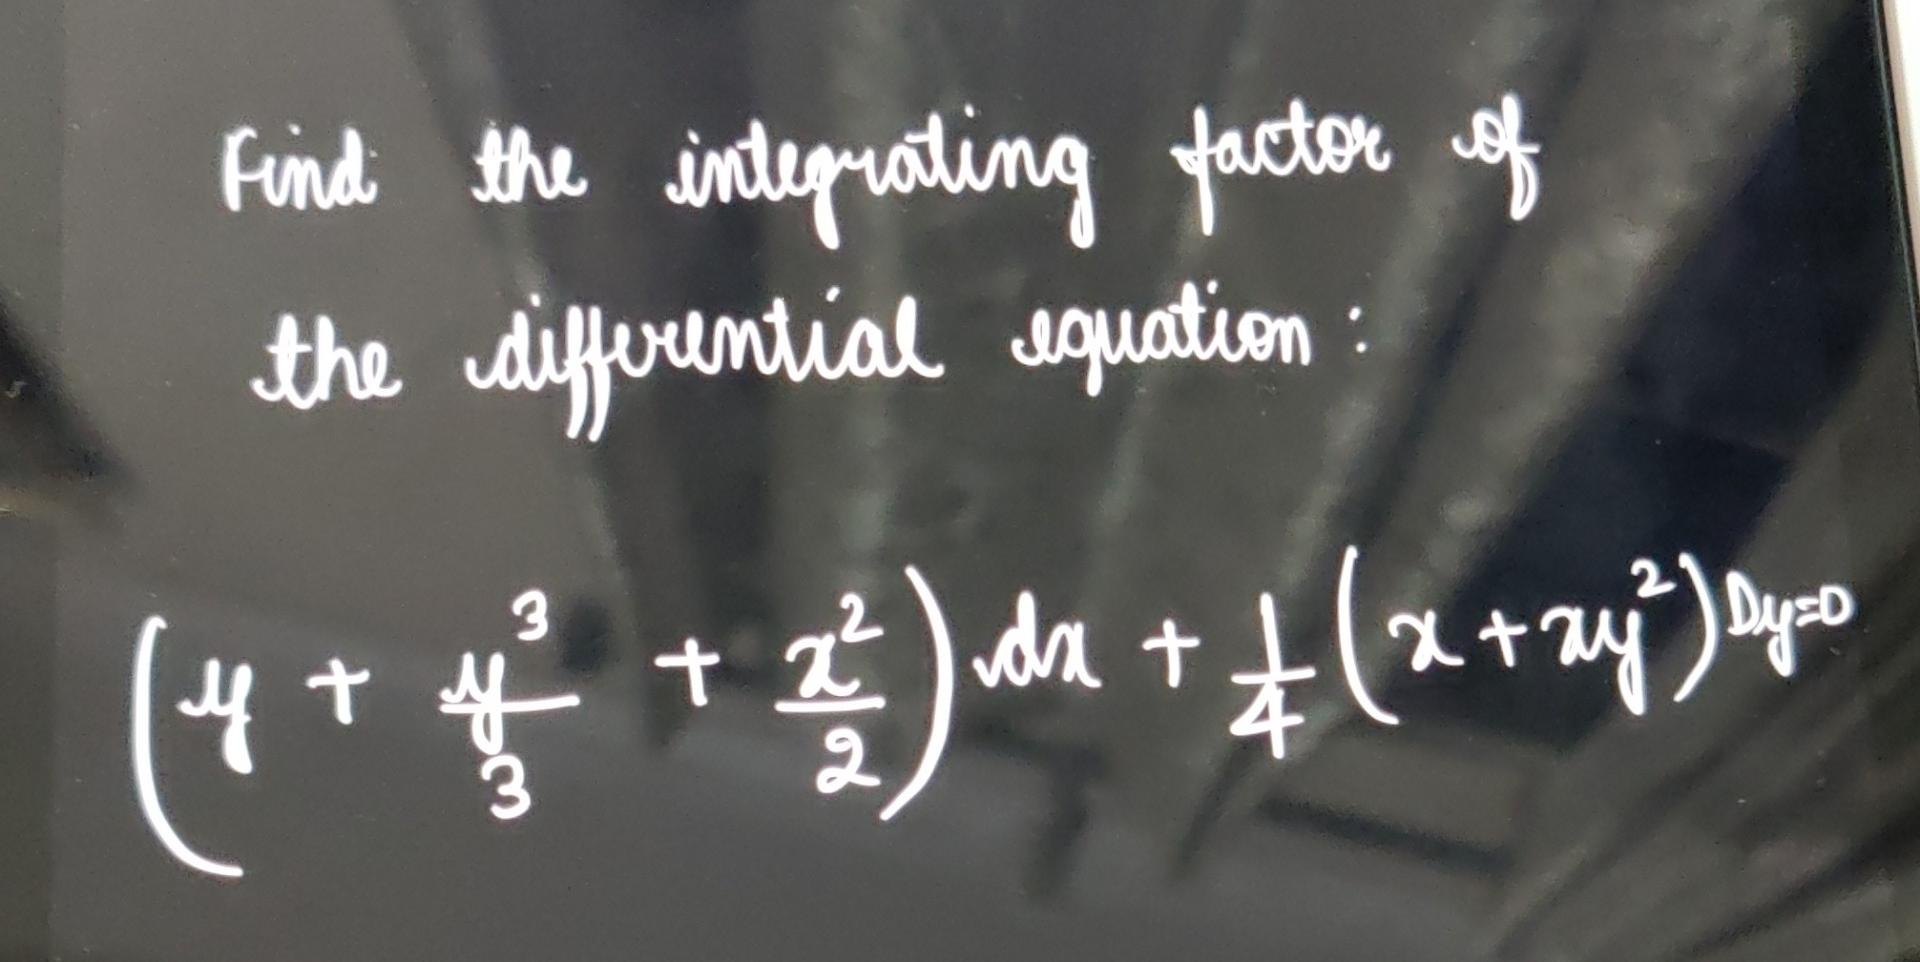 Find the integrating factor of
the differential equation:
(y + y³/3 + x²/2) dx + 1/4 (x + xy²) Dy=0